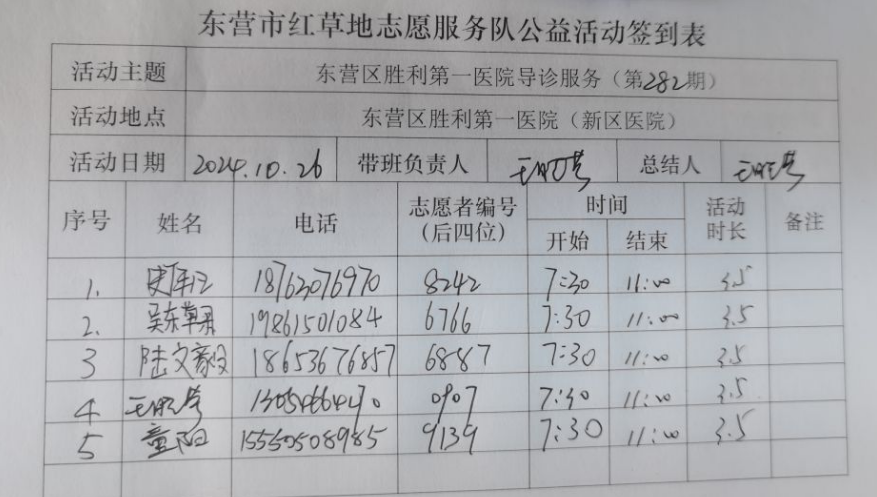 东营市红草地志愿服务队公益活动签到表
活动主题 东营区胜利第一医院导诊服务（第282期）
活动地点 东营区胜利第一医院（新区医院）
活动日期 2024.10.26 带班负责人 总结人
序号 姓名 电话 志愿者编号（后四位） 时间 开始 结束 活动时长 备注
1. 18762076970 8242 7:30 11:00 3.5
2. 吴东苹 19861501084 6766 7:30 11:00 3.5
3 陆文毅 18653676857 6887 7:30 11:00 3.5
4 13054664470 0907 7:30 11:00 3.5
5 童阳 15550508985 9139 7:30 11:00 3.5